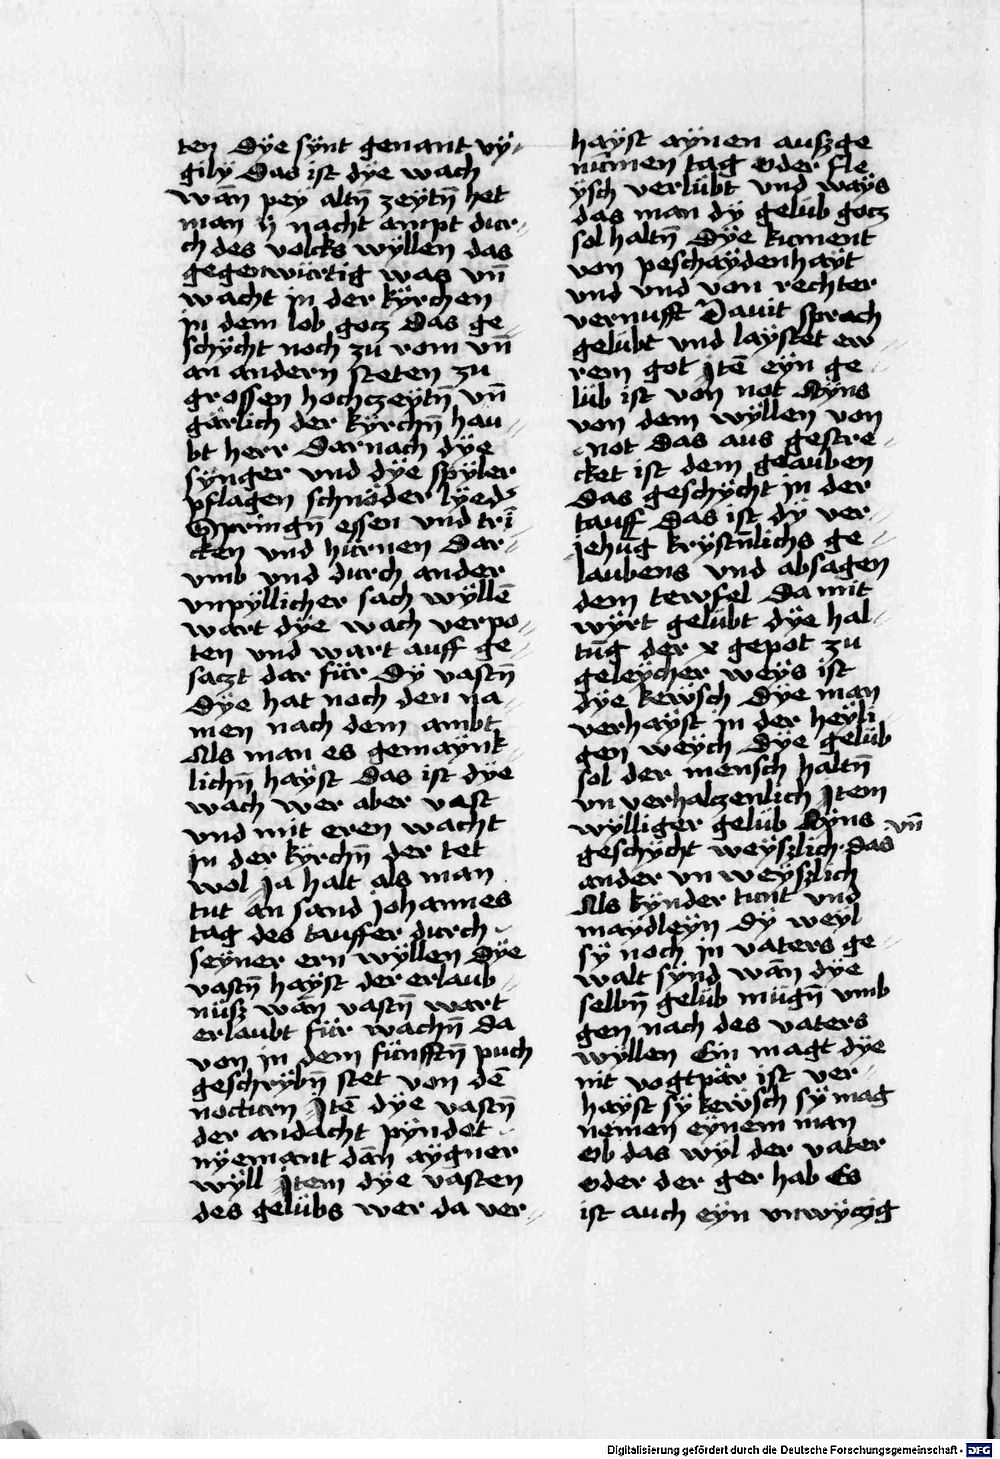 ten Dÿe sÿnt genant vÿ-
gilÿ Das ist dÿe wach
wān pey altn̄ zeytn̄ het
man ÿ nacht ampt dur-
ch des volcks wÿllen das
gegenwürtig was vn̄
wacht in der kÿrchen
jn dem lob gotz Das ge-
schÿcht noch zu rom vn̄
an andern steten zu
grossen hochzeytn̄ vn̄
gärlich der kÿrchn̄ hau-
bt herr Darnach dÿe
sÿnger vnd dÿe spÿler
pflagen schnöder lÿed's
Springn̄ essen vnd tri̅
cken vnd hürnen Dar-
vmb vnd durch ander
vnpÿllicher sach wÿllē
wart dÿe wach verpo-
ten vnd wart auff ge-
saczt dar für Dÿ vastn̄
Dÿe hat noch den na-
men nach dem ambt
Als man es gemaÿnk-
lichn̄ haÿst Das ist dÿe
wach wer aber vast
vnd mit eren wacht
jn der kÿrchn̄ der tet
wol ja halt als man
tut an sand johannes
tag des tauffer durch
seÿner ern wÿllen Dÿe
vastn̄ haÿst der erlaub-
nüsz wān vastn̄ wart
erlaubt für wachn̄ Da
von jn dem fünfftn̄ puch
geschrÿbn̄ stet von dē
nocturn Jtē dÿe vastn̄
der andacht pÿndet
nÿemant dān aÿgner
wÿll Jtem dÿe vasten
des gelübs wer da ver-
haÿst aÿnen auszge
nūmen tag oder fle
ÿsch verlübt vnd waÿs
das man dÿ gelüb gocz
sol haltn̄ Dÿe kument
von peschaÿdenhaÿt
vnd vnd von rechter
vernufft Dauit sprach
gelübt vnd laÿstet ew-
rem got Jtē eÿn ge-
lüb ist von not Aÿns
von dem wÿllen von
not Das aus gestre-
cket ist dem gelauben
Das geschÿcht jn der
tauff Das ist dÿ ver-
jehūg krÿstn̄lichs ge-
laubens vnd absagen
dem tewfel Da mit
wÿrt gelübt dÿe hal-
tūg der x gepot zu
geleÿcher weÿs ist
dÿe kewsch Dÿe man
verhaÿst jn der heÿli-
gen weÿch Dÿe gelüb
sol der mensch haltn̄
vn verhalczenlich Jtem
wÿlliger gelüb Aÿns vn̄
geschÿcht weÿszlich das
ander vn weÿszlich
Als kÿnder tunt vnd
maÿdleÿn Dÿ weÿl
sÿ noch jn vaters ge-
walt sÿnd wān dÿe
selbn̄ gelüb mügn̄ vmb
gen nach des vaters
wÿllen Ein magt dÿe
nit vogtpär ist ver-
haÿst sÿ kewsch sÿ mag
nemen eÿnem man
Ob das wÿl der vater
oder der ger hab Es
ist auch eÿn vnwÿczig